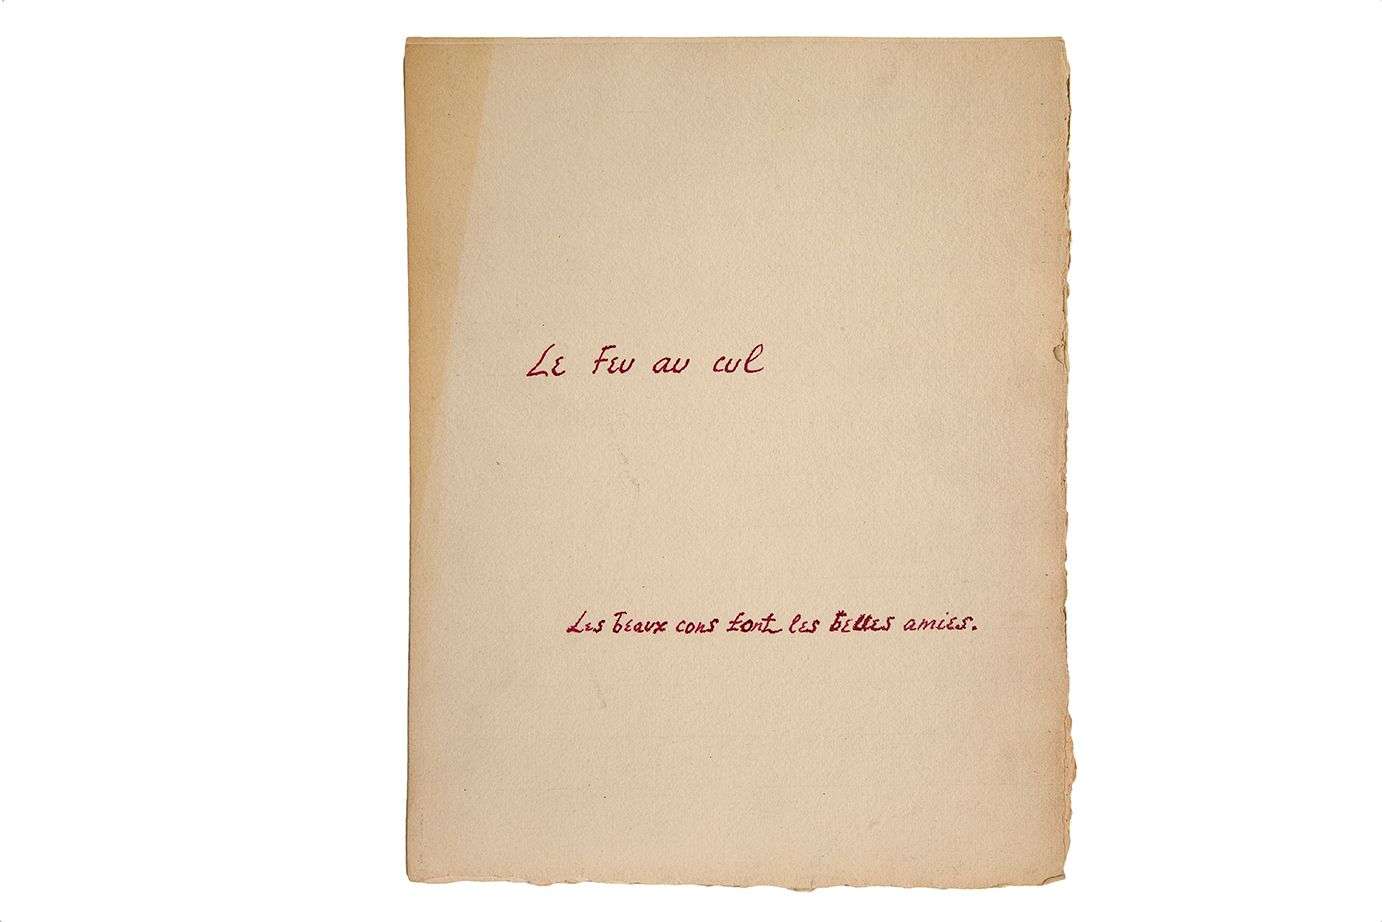 Le Feu au cul
Les beaux cons font les belles amies.